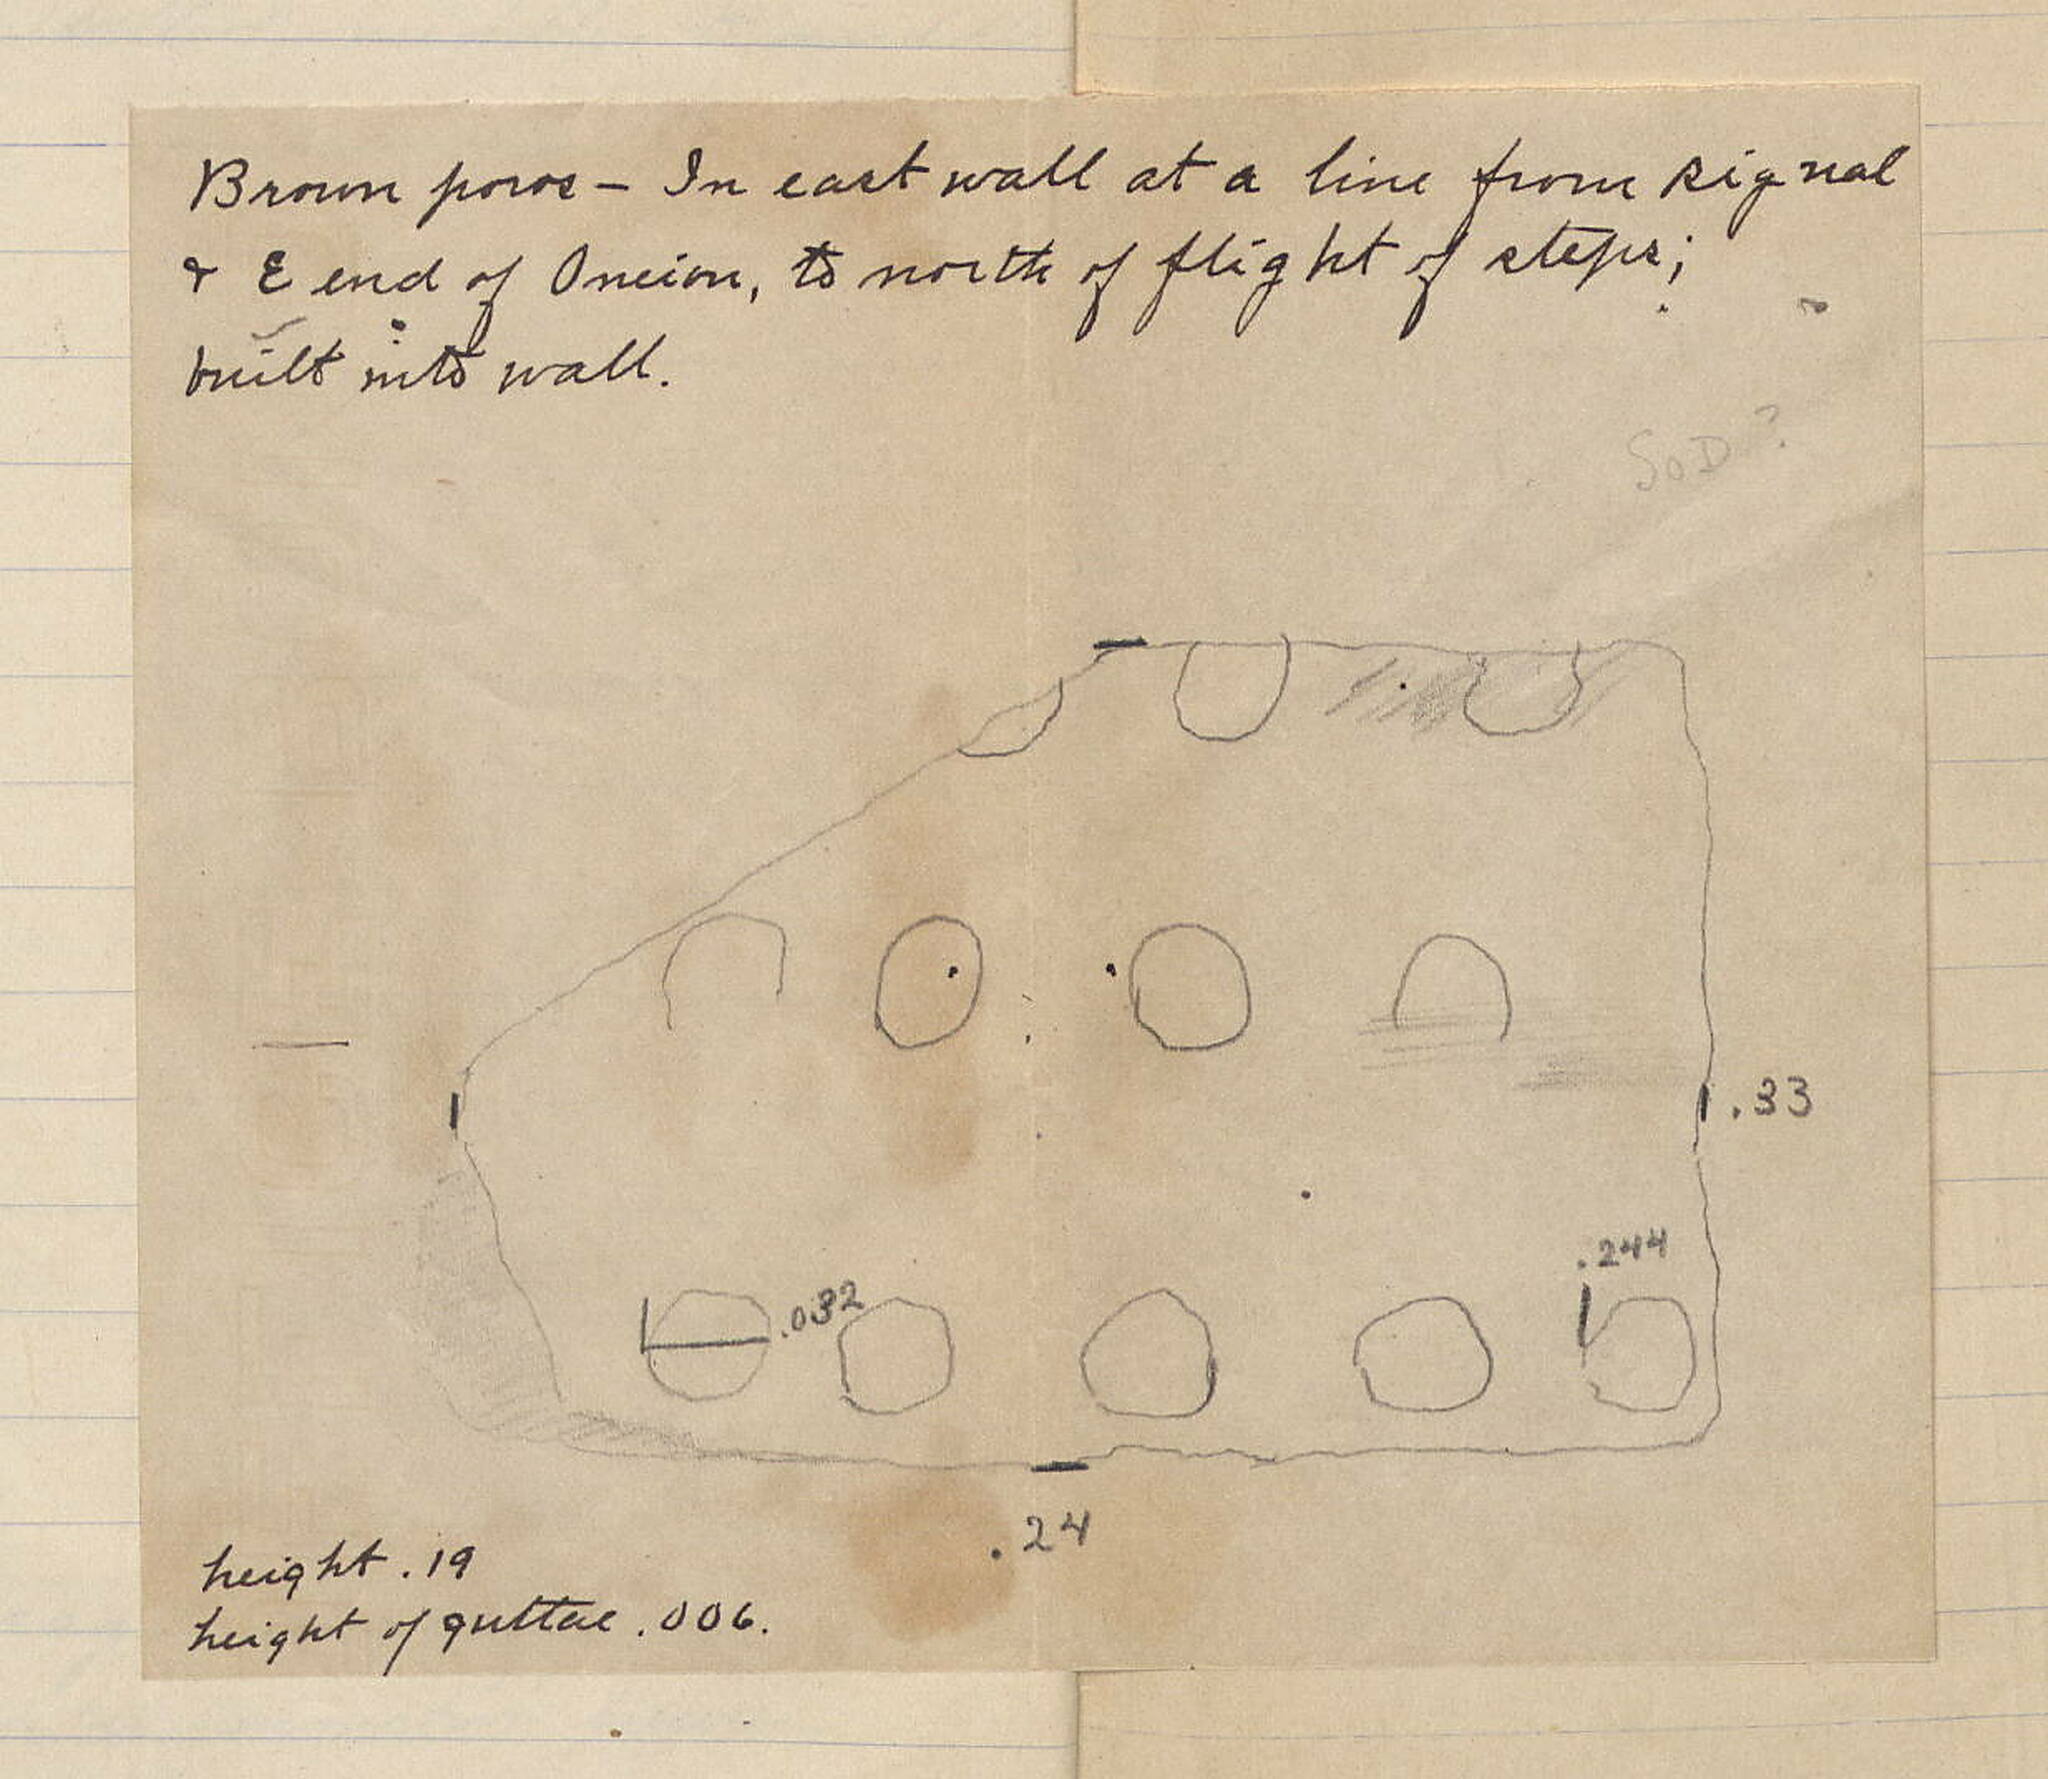 Brown poros – In east wall at a line from signal
& E end of Oneion, to north of flight of steps;
built into wall.
SoD ?
.33
.244
.032
.24
height .19
height of guttae .006.